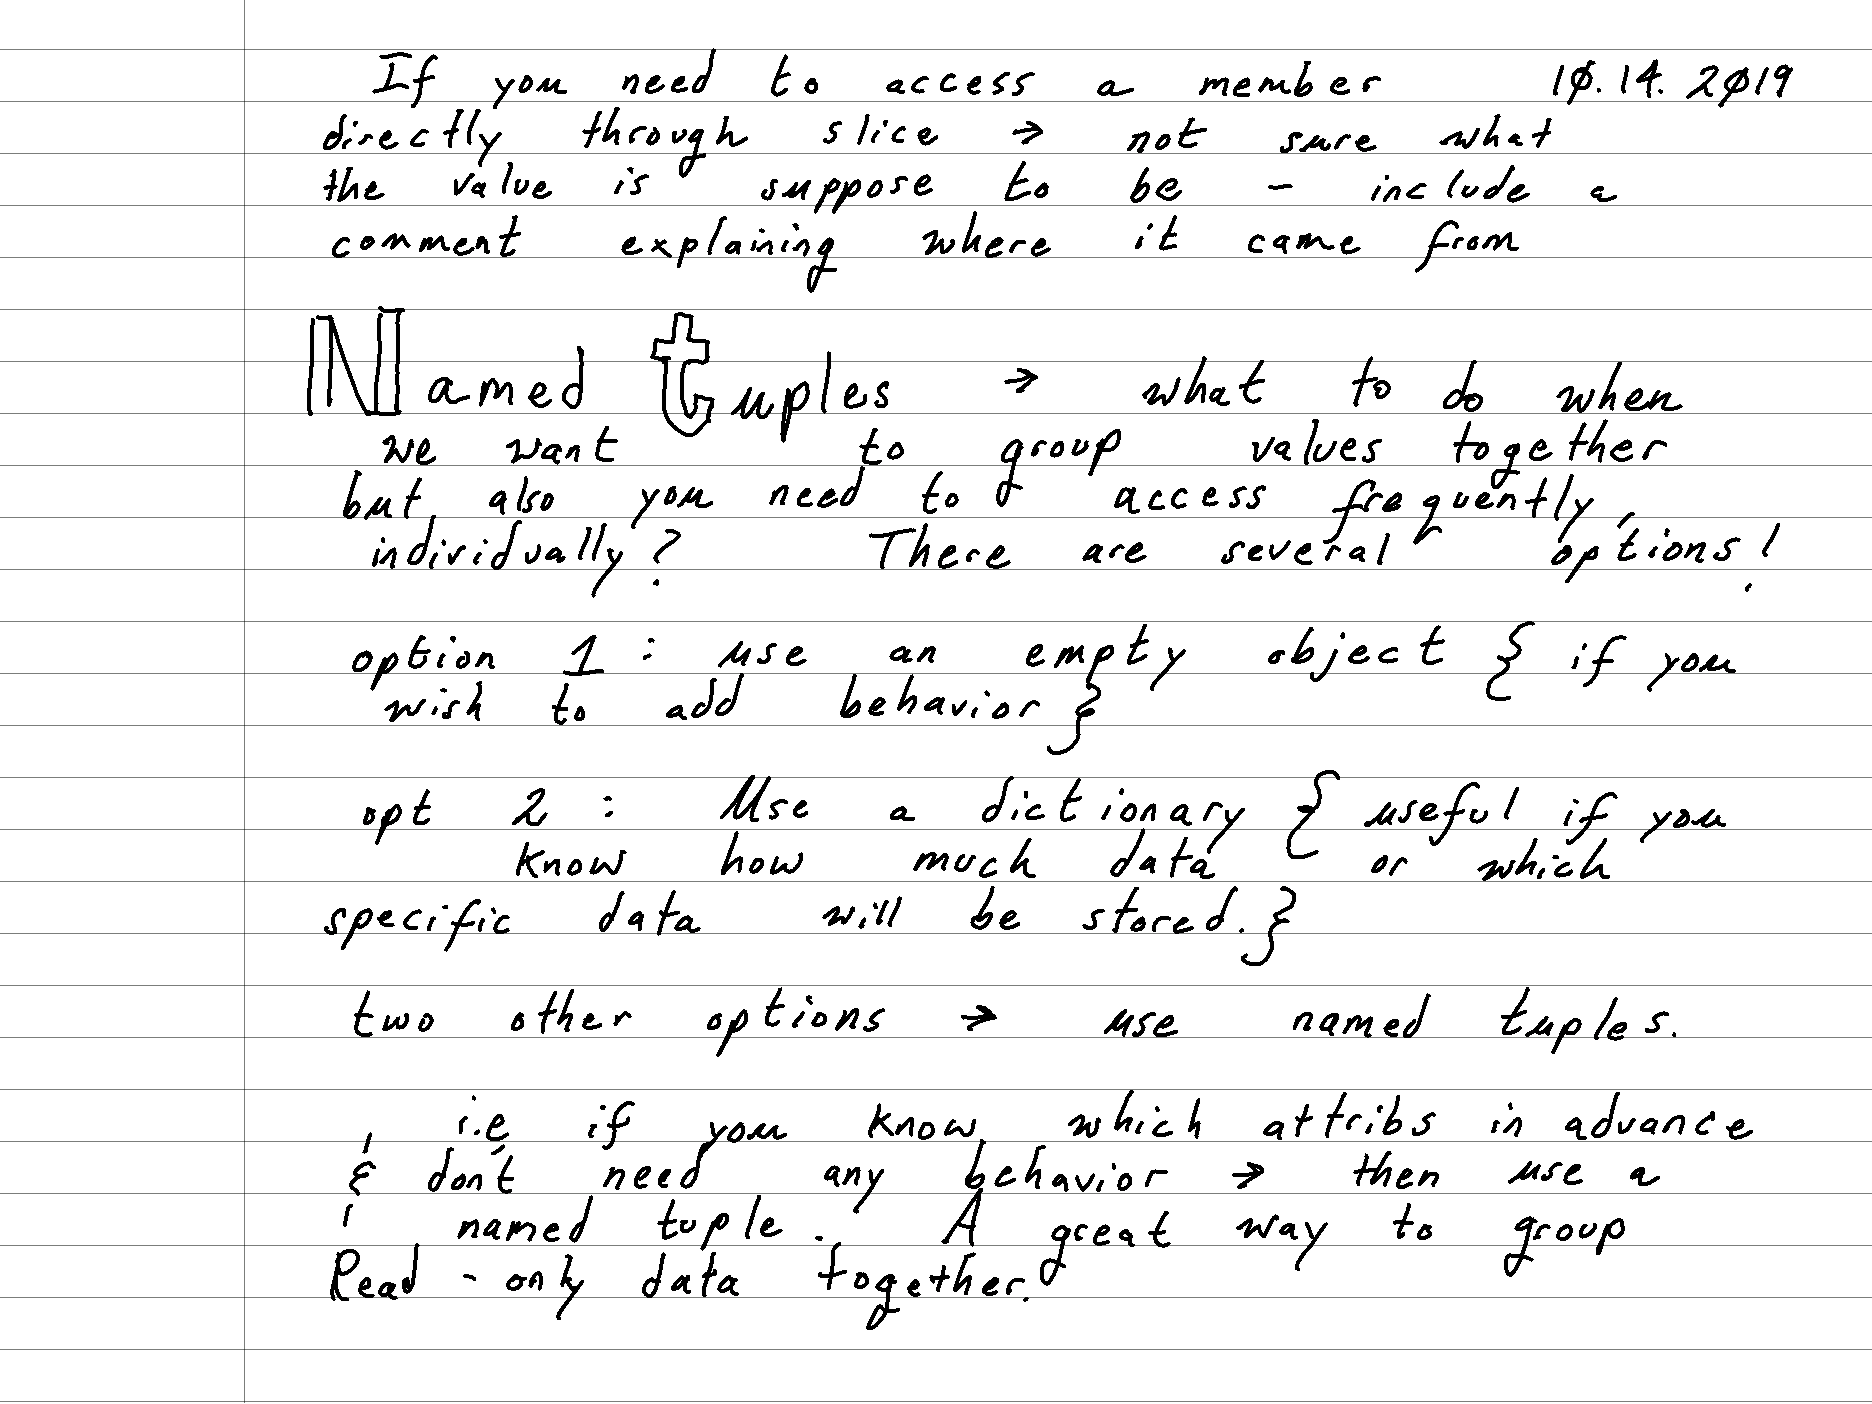 If you need to access a member 10.14.2019
directly through slice → not sure what
the value is suppose to be - include a
comment explaining where it came from
Named tuples → what to do when
we want to group values together
but also you need to access frequently,
individually? There are several options!
option 1: use an empty object { if you
wish to add behavior }
opt 2: Use a dictionary { useful if you
know how much data or which
specific data will be stored. }
two other options → use named tuples.
i.e. if you know which attribs in advance
& don't need any behavior → then use a
named tuple. A great way to group
Read-only data together.